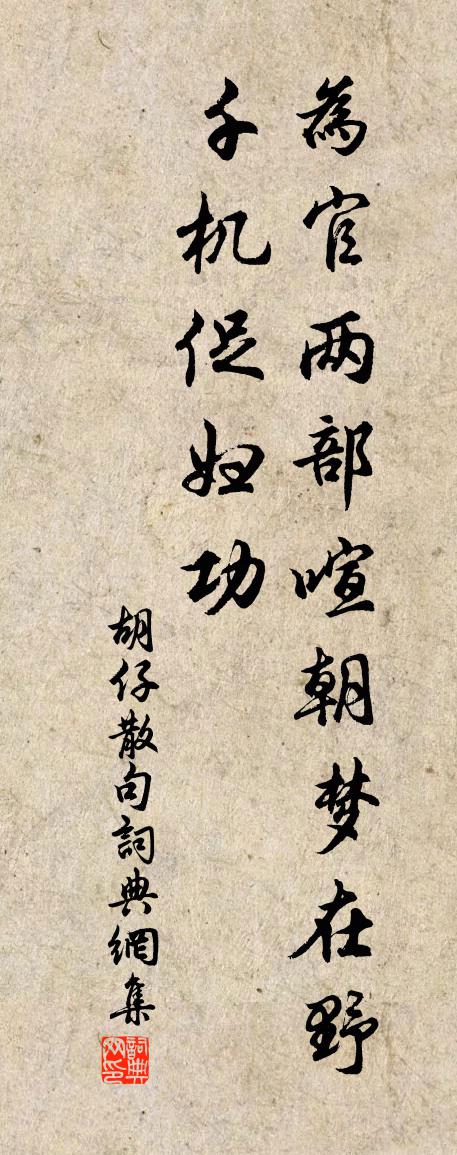 為官两部喧朝梦在野
千机促妇功
胡仔散句詞典網集
詞典网印